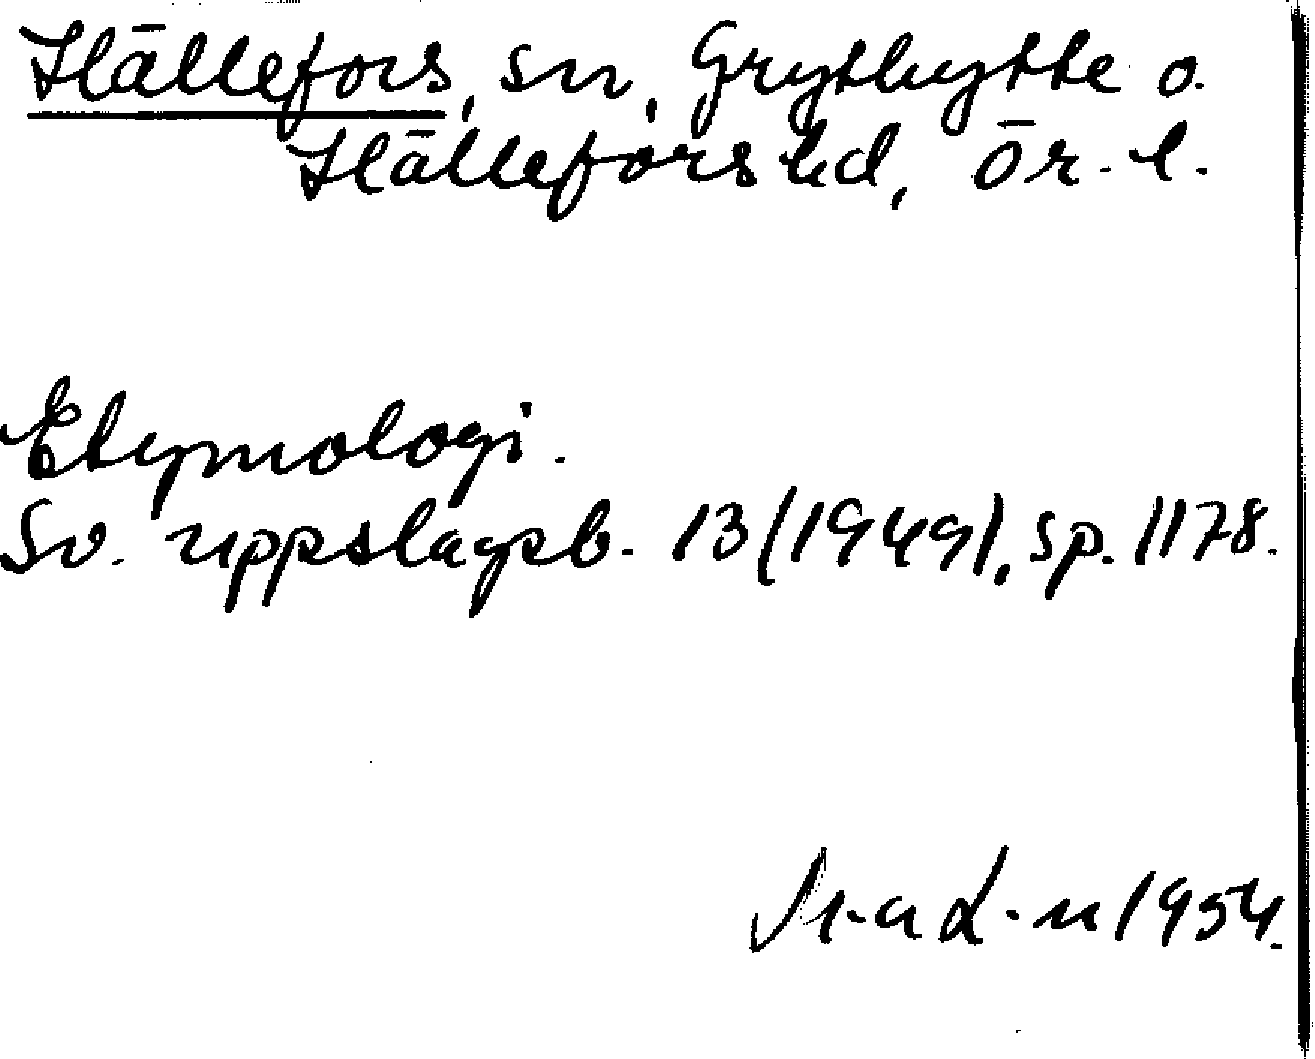 Hällefors, sn, Grythytte o.
Hällefors hd, Ör. l.
Etymologi.
Sv. uppslagsb. 13 (1949), sp. 1178.
1954.